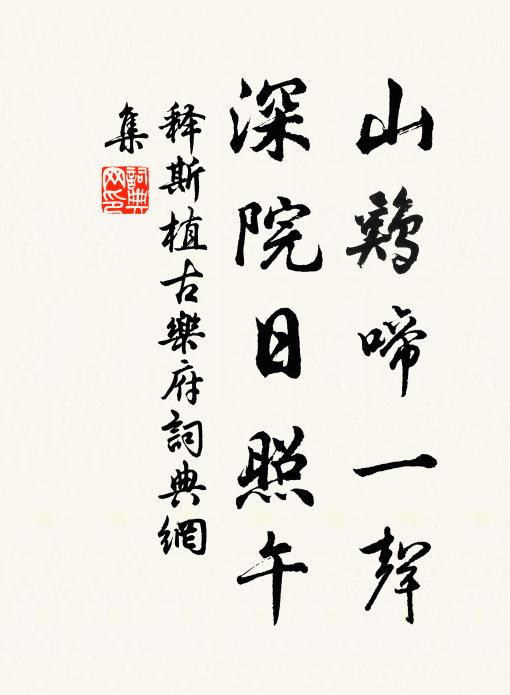 山鷄啼一聲
深院日照午
释斯植古樂府詞典網
集
詞典
网印